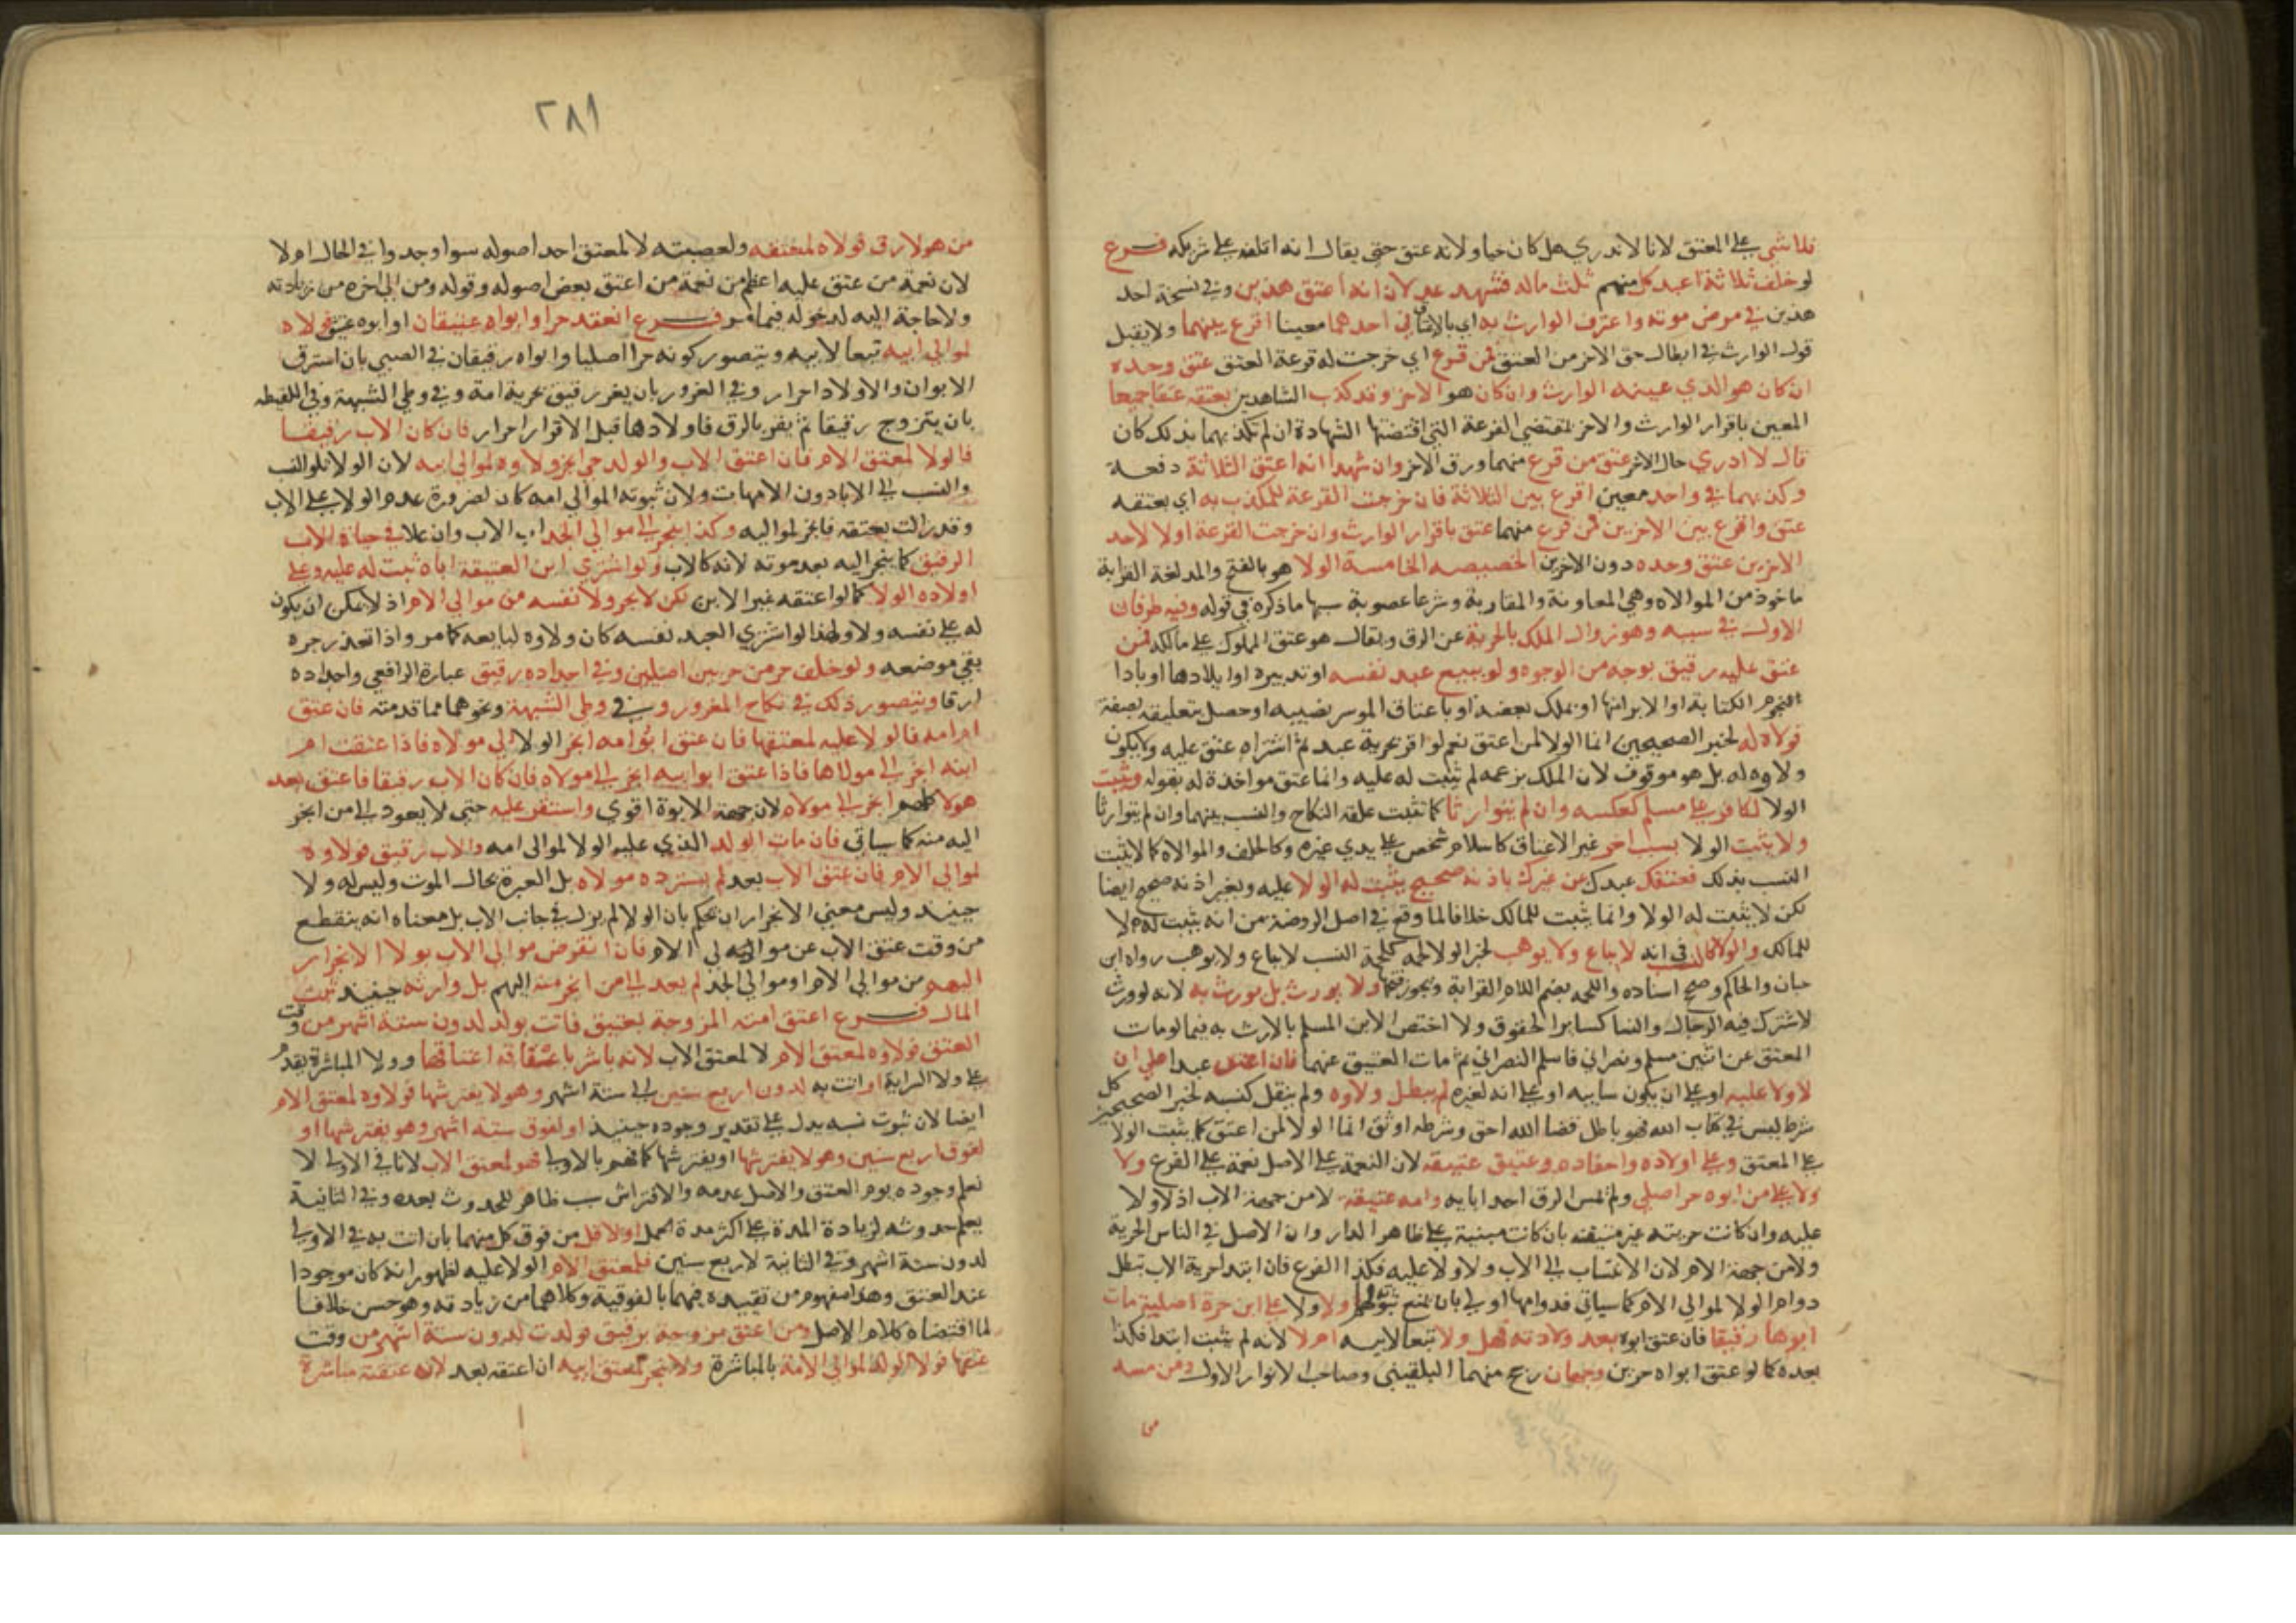 فلا شي على المعتق لانا لا ندري هل كان حيا ولانه عتق حتى يقال انه اتلفه على شريكه فرع
لو خلف ثلاثة اعبد كل منهم ثلث ماله فشهد عدلان انه اعتق هذين وفي نسخة احد
هذين في مرض موته واعترف الوارث به اي بالاعتاق في احدهما معينا اقرع بينهما ولا يقبل
قول الوارث في ابطال حق الاخر من العتق فمن قرع اي خرجت له قرعة العتق عتق وحده
ان كان هو الذي عينه الوارث وان كان هو الاخر وقد كذب الشاهدين بعتقه عتقا جميعا
المعين باقرار الوارث والاخر بمقتضى القرعة التي اقتضتها الشهادة ان لم يكذبهما بذلك كان
قال لا ادري حال الاخر عتق من قرع منهما ورق الاخر وان شهدا انه اعتق الثلاثة دفعة
وكذبهما في واحد معين اقرع بين الثلاثة فان خرجت القرعة للمكذب به اي بعتقه
عتق واقرع بين الاخرين فمن قرع منهما عتق باقرار الوارث وان خرجت القرعة اولا لاحد
الاخرين عتق وحده دون الاخرين الخصيصه الخامسة الولا هو بالفتح والمد لغة القرابة
ماخوذ من الموالاه وهي المعاونة والمقاربة وشرعا عصوبة سببها ما ذكره في قوله وفيه طرفان
الاول في سببه وهو زوال الملك بالحرية عن الرق ويقال هو عتق المملوك على مالكه فمن
عتق عليه رقيق بوجه من الوجوه ولو ببيع عبد نفسه او تدبيره او ايلادها او باداا
النجوم الكتابة او الابرا منها او بملك بعضه او باعتاق الموسر نصيبه او حصل بتعليقه بصفة
فولاه له لخبر الصحيحين انما الولا لمن اعتق نعم لو اقر بحرية عبد ثم اشتراه عتق عليه ولا يكون
ولاوه له بل هو موقوف لان الملك بزعمه لم يثبت له عليه وانما عتق مواخذة له بقوله ويثبت
الولا لكافر على مسلم كعكسه وان لم يتوارثا كما تثبت علقة النكاح والنسب بينهما وان لم يتوارثا
ولا يثبت الولا بسبب اخر غير الاعتاق كاسلام شخص على يدي غيره وكالحلف والموالاه كما لا يثبت
النسب بذلك فعتقك عبدك عن غيرك باذنه صحيح يثبت له الولا عليه وبغير اذنه صحيح ايضا
لكن لا يثبت له الولا وانما يثبت للمالك خلافا لما وقع في اصل الروضة من انه يثبت له لا
للمالك والولا كالنسب في انه لا يباع ولا يوهب لخبر الولا لحمة كلحمة النسب لا يباع ولا يوهب رواه ابن
حبان والحاكم وصحح اسناده واللحمه بضم اللام القرابة ويجوز فتحها ولا يورث بل يورث به لانه لو ورث
لاشترك فيه الرجال والنسا كساير الحقوق ولا اختص الابن المسلم بالارث به فيما لو مات
المعتق عن ابنين مسلم ونصراني فاسلم النصراني ثم مات العتيق عنهما فان اعتق عبدا على ان
لا ولا عليه او على ان يكون سايبه او على انه لغيره لم يبطل ولاوه ولم ينقل كنسبه لخبر الصحيحين كل
شرط ليس في كتاب الله فهو باطل قضا الله احق وشرطه اوثق انما الولا لمن اعتق كما يثبت الولا
على المعتق وعلى اولاده واحفاده وعتيق عتيقه لان النعمة على الاصل نعمة على الفرع ولا
ولا على من ابوه حر اصلي ولم يمس الرق احد ابايه وامه عتيقة لا من جهة الاب اذ لا ولا
عليه وان كانت حريته غير متيقنه بان كانت مبنية على ظاهر الدار وان الاصل في الناس الحرية
ولا من جهة الام لان الانتساب الى الاب ولا ولا عليه فكذا الفرع فان ابتدا حرية الاب تبطل
دوام الولا لموالي الام كما سياتي فدوامها اولى بان تمنع ثبوته لهم ولا ولا على ابن حرة اصلية مات
ابوها رقيقا فان عتق ابوه بعد ولادته فهل ولا تبعا لابيه ام لا لانه لم يثبت ابتدا فكذا
بعده كما لو عتق ابواه حرين وجهان رجح منهما البلقيني وصاحب الانوار الاول ومن مسه
٢٨١
من هولا رق فولاه لمعتقه ولعصبته لا لمعتق احد اصوله سوا وجدوا في الحال ام لا
لان نعمة من عتق عليه اعظم من نعمة من اعتق بعض اصوله وقوله ومن الى اخره من زيادته
ولا حاجة اليه لدخوله فيما مر فرع انعقد حرا وابواه عتيقان او ابوه عتيق فولاه
لموالي ابيه تبعا لابيه ويتصور كونه حرا اصليا وابواه رقيقان في الصبي بان استرق
الابوان والاولاد احرار وفي الغرور بان يغر رقيق بحرية امة وفي وطي الشبهة وفي اللقيطه
بان يتزوج رقيقا ثم يقر بالرق فاولادها قبل الاقرار احرار فان كان الاب رقيقا
فالولا لمعتق الام فان اعتق الاب والولد حي انجر ولاوه لموالي ابيه لان الولا تلو النسب
والنسب الى الابا دون الامهات ولان ثبوته لموالي امه كان لضرورة عدم الولا على الاب
وقد زالت بعتقه فانجر لمواليه وكذا ينجر الى موالي الجد اب الاب وان علا في حياة الاب
الرقيق كما ينجر اليه بعد موته لانه كالاب ولو اشترى ابن العتيقة اباه ثبت له عليه وعلى
اولاده الولا كما لو اعتقه غير الابن لكن لا يجر ولا نفسه من موالي الام اذ لا يمكن ان يكون
له على نفسه ولا ولهذا لو اشترى العبد نفسه كان ولاوه لبايعه كما مر واذا تعذر جره
بقي موضعه ولو خلف حر من حرين اصليين وفي اجداده رقيق عبارة الرافعي واجداده
ارقا ويتصور ذلك في نكاح المغرور وفي وطي الشبهة ونحوهما مما قدمته فان عتق
ام امه فالولا عليه لمعتقها فان عتق ابو امه انجر الولا الى مولاه فاذا عتقت ام
ابيه انجر الى مولاها فاذا عتق ابو ابيه انجر الى مولاه فان كان الاب رقيقا فاعتق بعد
هولا كلهم انجر الى مولاه لان جهة الابوة اقوي واستقر عليه حتى لا يعود الى من انجر
اليه منه كما سياتي فان مات الولد الذي عليه الولا لموالي امه والاب رقيق فولاوه
لموالي الام فان عتق الاب بعد لم يسترده مولاه بل العبرة بحال الموت وليس له ولا
حينيذ وليس معنى الانجرار ان يحكم بان الولا لم يزل في جانب الاب بل معناه انه ينقطع
من وقت عتق الاب عن موالي الام فان انقرض موالي الاب بولا الانجرار
اليهم من موالي الام او موالي الجد لم يعد الى من انجر منه اليهم بل وارثه حينيذ بيت
المال فرع اعتق امته المزوجة بعتيق فاتت بولد لدون ستة اشهر من وقت
العتق فولاوه لمعتق الام لا لمعتق الاب لانه باشر باعتاقه اعتاقها وولا المباشرة يقدم
على ولا السراية او اتت به لدون اربع سنين الى ستة اشهر وهو لا يفترشها فولاوه لمعتق الام
ايضا لان ثبوت نسبه يدل على تقدير وجوده حينيذ او لفوق ستة اشهر وهو يفترشها او
لفوق اربع سنين وهو لا يفترشها او يفترشها كما فهم بالاولى فهو لمعتق الاب لانا في الاولى لا
نعلم وجوده يوم العتق والاصل عدمه والافتراش سبب ظاهر للحدوث بعده وفي الثانية
يعلم حدوثه لزيادة المدة على اكثر مدة الحمل او لاقل من فوق كل منهما بان اتت به في الاولى
لدون ستة اشهر وفي الثانية لاربع سنين فلمعتق الام الولا عليه لظهور انه كان موجودا
عند العتق وهذا مفهوم من تقييده فيهما بالفوقية وكلاهما من زيادته وهو حسن خلافا
لما اقتضاه كلام الاصل ومن اعتق مزوجة برقيق فولدت لدون ستة اشهر من وقت
عتقها فولا الولد لموالي الامة بالمباشرة ولا ينجر لمعتق ابيه ان اعتقه بعد لانه عتقته مباشرة